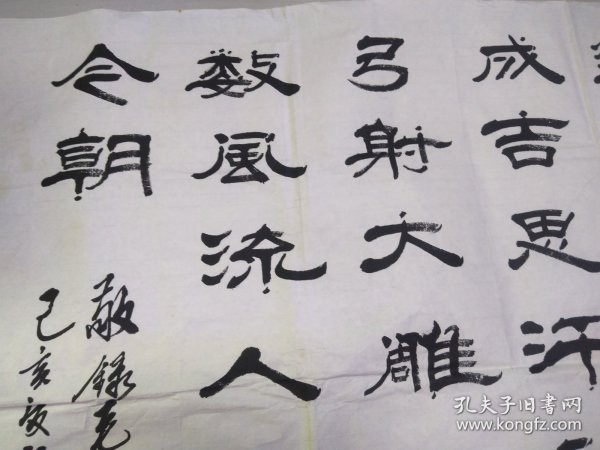 成吉思汗
弓射大雕
数風流人
今朝
敬録
己亥
孔夫子旧书网
www.kongfz.com